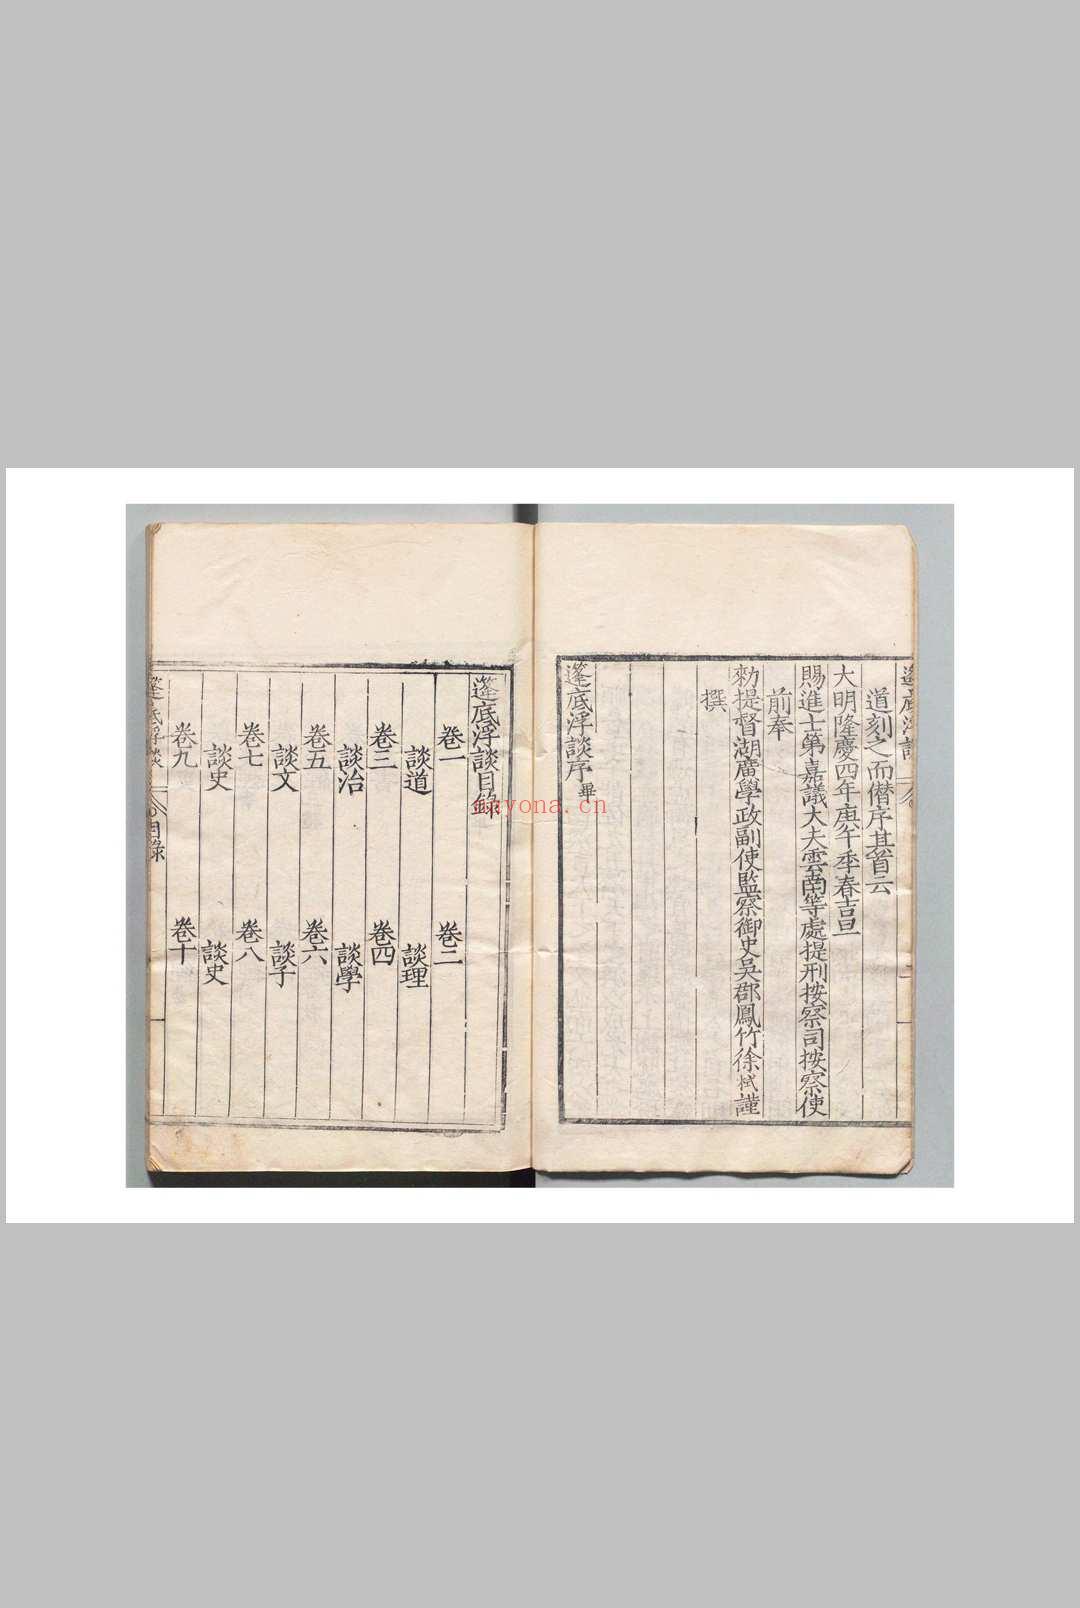 篷底浮談
道刻之而僭序其首云
大明隆慶四年庚午季春吉旦
賜進士第嘉議大夫雲南等處提刑按察司按察使
前奉
勑提督湖廣學政副使監察御史吳郡鳳竹徐栻謹
撰
篷底浮談序畢
篷底浮談目錄
卷一 卷二
談道 談理
卷三 卷四
談治 談學
卷五 卷六
談文 談子
卷七 卷八
談史 談史
卷九 卷十
篷底浮談 目錄
ayona.cn